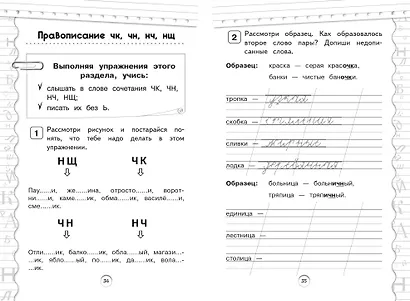 Правописание чк, чн, нч, нщ
Выполняя упражнения этого
раздела, учись:
✓ слышать в слове сочетания ЧК, ЧН,
НЧ, НЩ;
✓ писать их без Ь.
1 Рассмотри рисунок и постарайся по-
нять, что тебе надо делать в этом
упражнении.
НЩ ЧК
Пау......и, же......ина, отросто......и, ворот-
ни......и, каме......ик, обма......ик, василё......и,
сме......ик.
ЧН НЧ
Отли......ик, балко......ик, обла......ый, магази...-
...ик, ябло......ый, по......ик, да......ик, вола...-
...ик.
34
2 Рассмотри образец. Как образовалось
второе слово пары? Допиши недопи-
санные слова.
Образец: краска — серая красочка,
банки — чистые баночки.
тропка — узкая
скобка —
сливки —
лодка — деревянная
Образец: больница — больничный,
тряпица — тряпичный.
единица —
лестница —
столица —
35